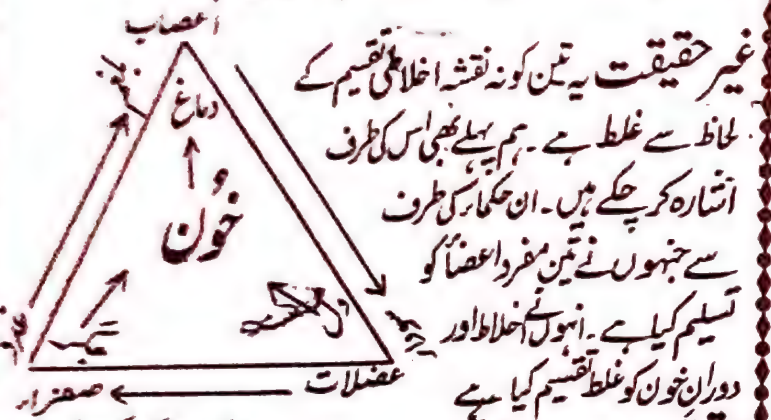 اعصاب
دماغ
خُون
جگر
عضلات
صفراء
غیر حقیقت یہ تین کونہ نقشہ اخلاطی تقسیم کے
لحاظ سے غلط ہے ۔ ہم پہلے بھی اس کی طرف
اشارہ کر چکے ہیں۔ ان حکماء کی طرف
سے جنہوں نے تین مفرد اعضاً کو
تسلیم کیا ہے ۔ انہوں نے اخلاط اور
دورانِ خون کو غلط تقسیم کیا ہے